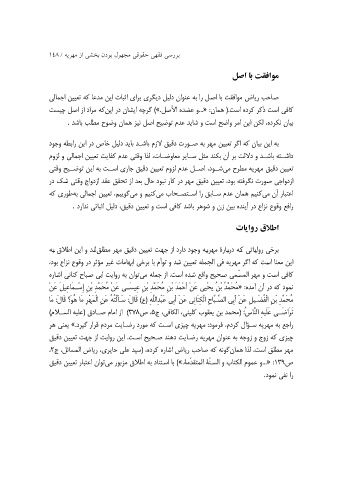 بررسی فقهی حقوقی مجهول بودن بخشی از مهریه / ۱۴۸
موافقت با اصل
صاحب ریاض موافقت با اصل را به عنوان دلیل دیگری برای اثبات این مدعا که تعیین اجمالی
کافی است ذکر کرده است.( همان: «..و عضده الأصل.») گرچه ایشان در این‌که مراد از اصل چیست
بیان نکرده، لکن این امر واضح است و شاید عدم توضیح اصل نیز همان وضوح مطلب باشد .
به این بیان که اگر تعیین مهر به صـورت دقیق لازم باشـد باید دلیل خاص در این رابطه وجود
داشـته باشـد و دلالت بر آن بکند مثل سـایر معاوضـات، لذا وقتی عدم کفایت تعیین اجمالی و لزوم
تعیین دقیق مهریه مطرح می‌شـود، اصـل عدم لزوم تعیین دقیق جاری اسـت به این توضـیح وقتی
ازدواجی صورت نگرفته بود، تعیین دقیق مهر در کار نبود حال بعد از تحقق عقد ازدواج وقتی شک در
اعتبار آن می‌کنیم همان عدم سـابق را اسـتصحاب می‌کنیم و می‌گوییم، تعیین اجمالی به‌طوری که
رافع وقوع نزاع در آینده بین زن و شوهر باشد کافی است و تعیین دقیق، دلیل اثباتی ندارد .
اطلاق روایات
برخی روایاتی که دربارهٔ مهریـه وجود دارد از جهت تعیین دقیق مهر مطلق‌اند و این اطلاق بـه
این معنا اسـت که اگر مهریه فی الجمله تعیین شد و توأم با برخی ابهامات غیر مؤثر در وقوع نزاع بود،
کافی است و مهر المسمّی صحیح واقع شده است، از جمله می‌توان به روایت ابی صباح کنانی اشاره
نمود که در آن آمده: «مُحَمَّدُ بْنُ یَحْیَی عَنْ أَحْمَدَ بْنِ مُحَمَّدِ بْنِ عِیسَـی عَنْ مُحَمَّدِ بْنِ إِسْـمَاعِیلَ عَنْ
مُحَمَّدِ بْنِ الْفُضَـیْلِ عَنْ أَبِی الصَّبَّاحِ الْکِنَانِی عَنْ أَبِی عَبْدِاللَّهِ (ع) قَالَ: سَـأَلْتُهُ عَنِ الْمَهْرِ مَا هُوَ؟ قَالَ: مَا
تَرَاضَـی عَلَیْهِ النَّاسُ؛ (محمد بن یعقوب کلینی، الکافی، ج۵، ص۳۷۸) از امام صـادق (علیه السـلام)
راجع به مهریه سـؤال کردم، فرمود: مهریه چیزی اسـت که مورد رضـایت مردم قرار گیرد.» یعنی هر
چیزی که زوج و زوجه به عنوان مهریه رضـایت دهند صـحیح اسـت. این روایت از جهت تعیین دقیق
مهر مطلق است، لذا همان‌گونه که صاحب ریاض اشاره کرده، (سید علی حایری، ریاض المسائل، ج۲،
ص۱۳۹: «..و عموم الکتاب و السنّة المتقدّمة.») با استناد به اطلاق مزبور می‌توان اعتبار تعیین دقیق
را نفی نمود.